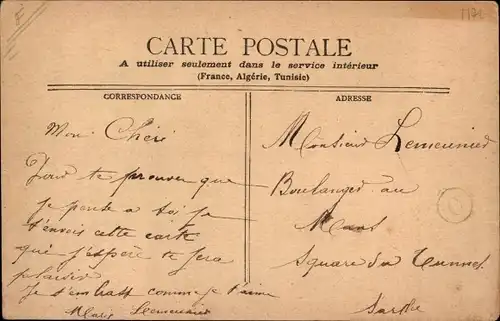 CARTE POSTALE
A utiliser seulement dans le service intérieur
(France, Algérie, Tunisie)
CORRESPONDANCE
Mon Chéri
Pour te prouver que
je pense a toi je
t'envois cette carte
que j'espère te fera
plaisir
Je t'embrass comme je t'aime
Marie Lemeunier
ADRESSE
Monsieur Lemeunier
Boulanger au
Mans
Square du Tunnel
Sarthe